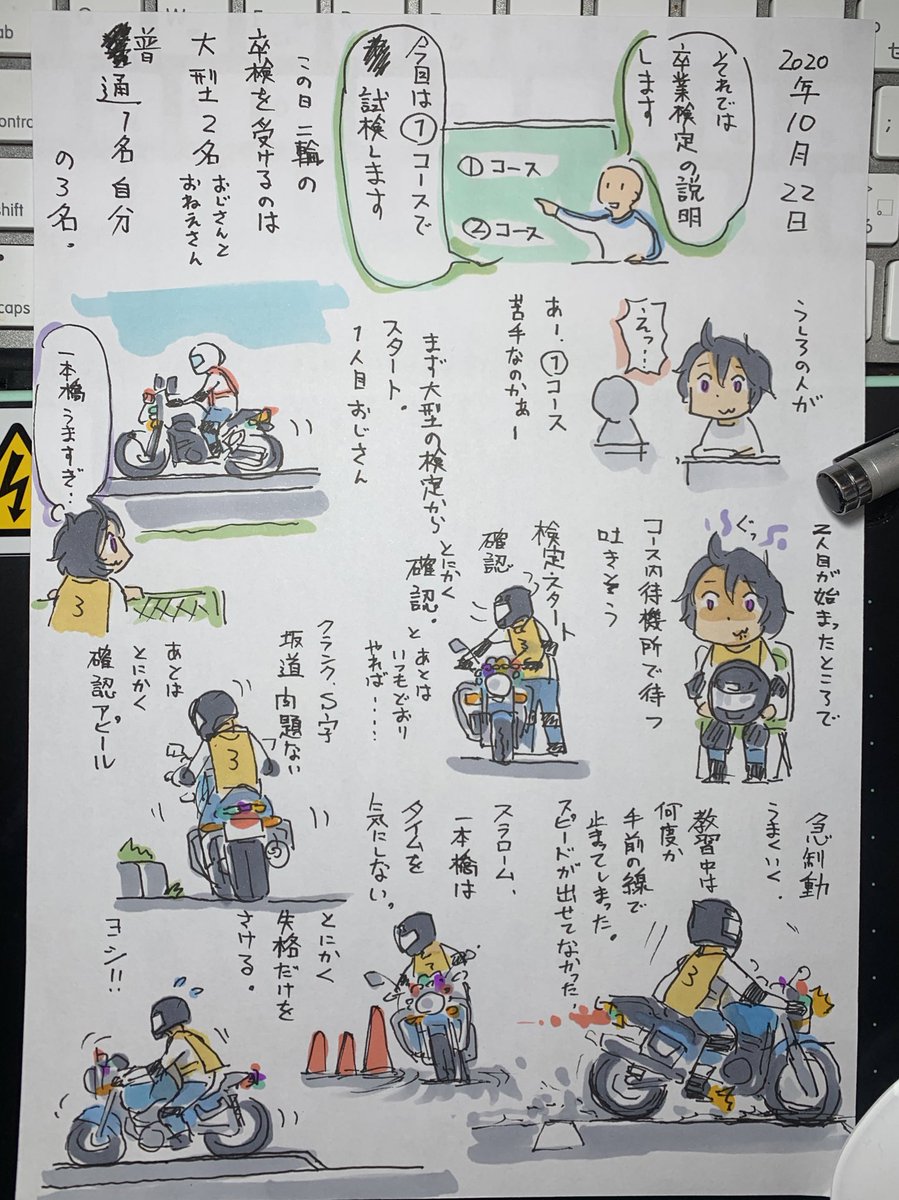 2020年10月22日
それでは
卒業検定の説明
します
①コース
②コース
今日は①コースで
試検します
この日 二輪の
卒検を受けるのは
大型2名 おじさんと
おねえさん
普通1名 自分
の3名.
うしろの人が
えっ…
あー.①コース
苦手なのかぁー
まず大型の検定から
スタート.
1人目 おじさん
一本橋うますぎ…
3
2人目が始まったところで
コース内待機所で待つ
吐きそう
ぐっ
検定スタート
確認
とにかく
確認。と
あとは
いつもどおり
やれば……
3
クランク、S字
坂道 問題ない
あとは
とにかく
確認アピール
3
急制動
うまくいく.
教習中は
何度か
手前の線で
止まってしまった。
スピードが出せてなかった.
3
スラローム、
一本橋は
タイムを
気にしない。
とにかく
失格だけを
さける。
ヨシ!!
caps
shift